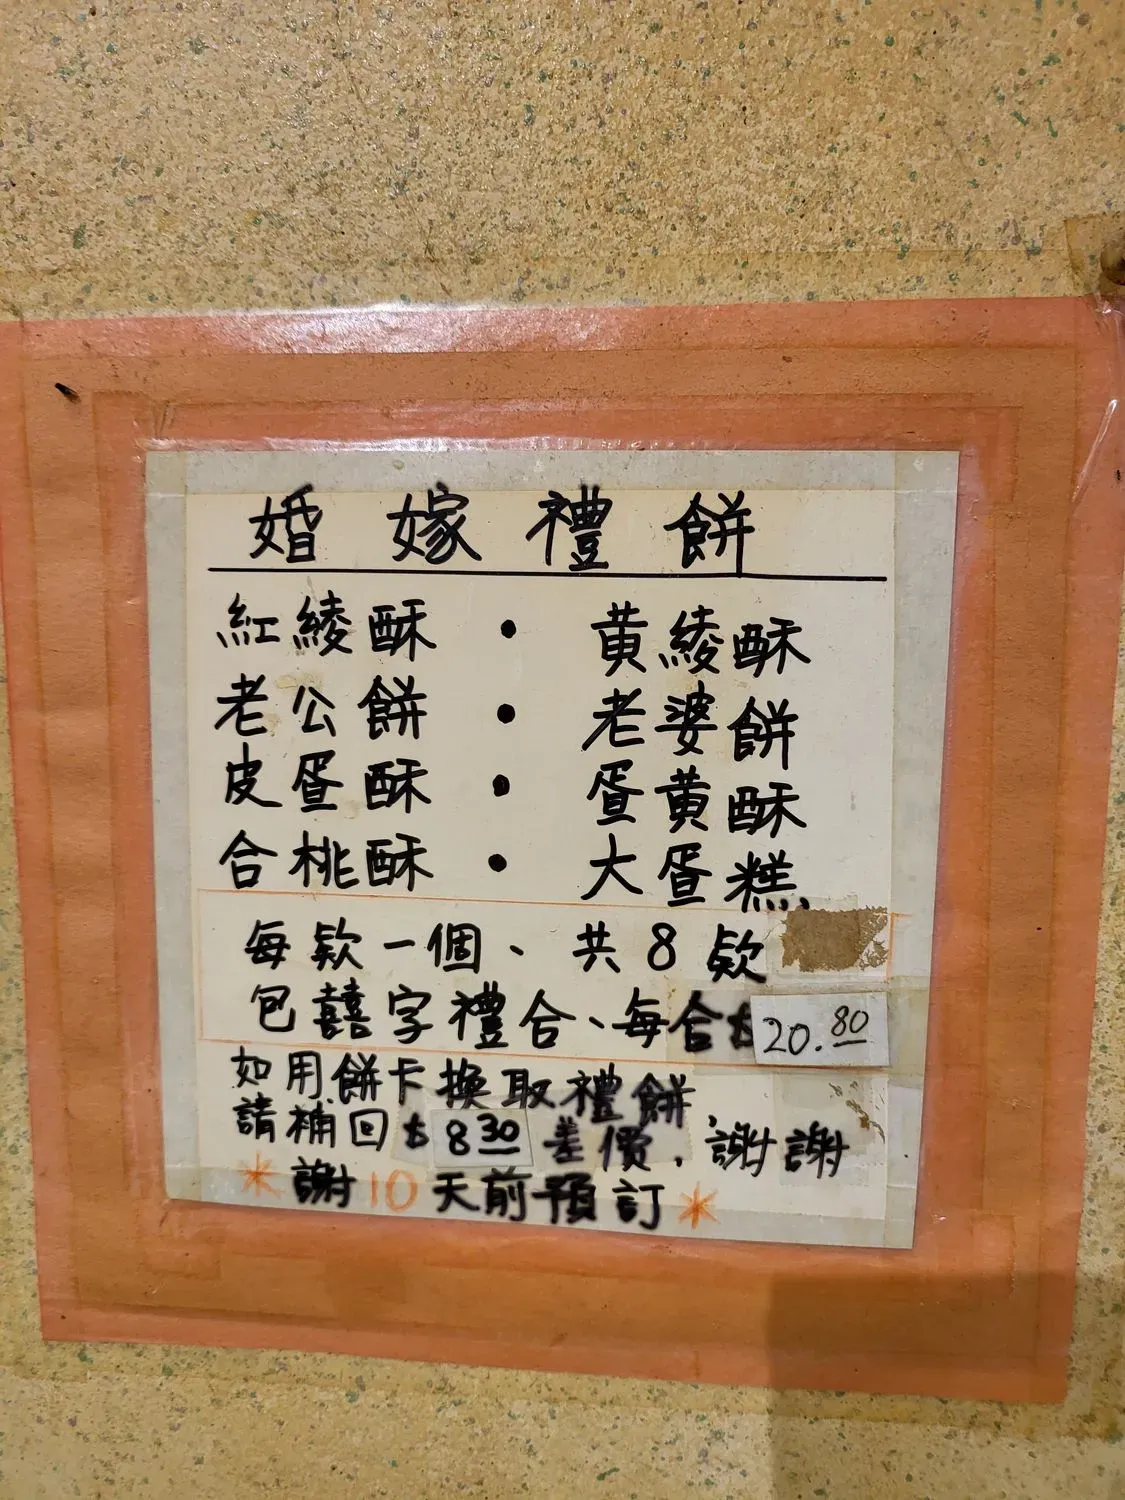 婚嫁禮餅
紅綾酥・黃綾酥
老公餅・老婆餅
皮蛋酥・蛋黃酥
合桃酥・大蛋糕
每欵一個、共8欵
包囍字禮合、每合$20.80
如用餅卡換取禮餅,
請補回$8.30差價,謝謝
*謝10天前預訂*